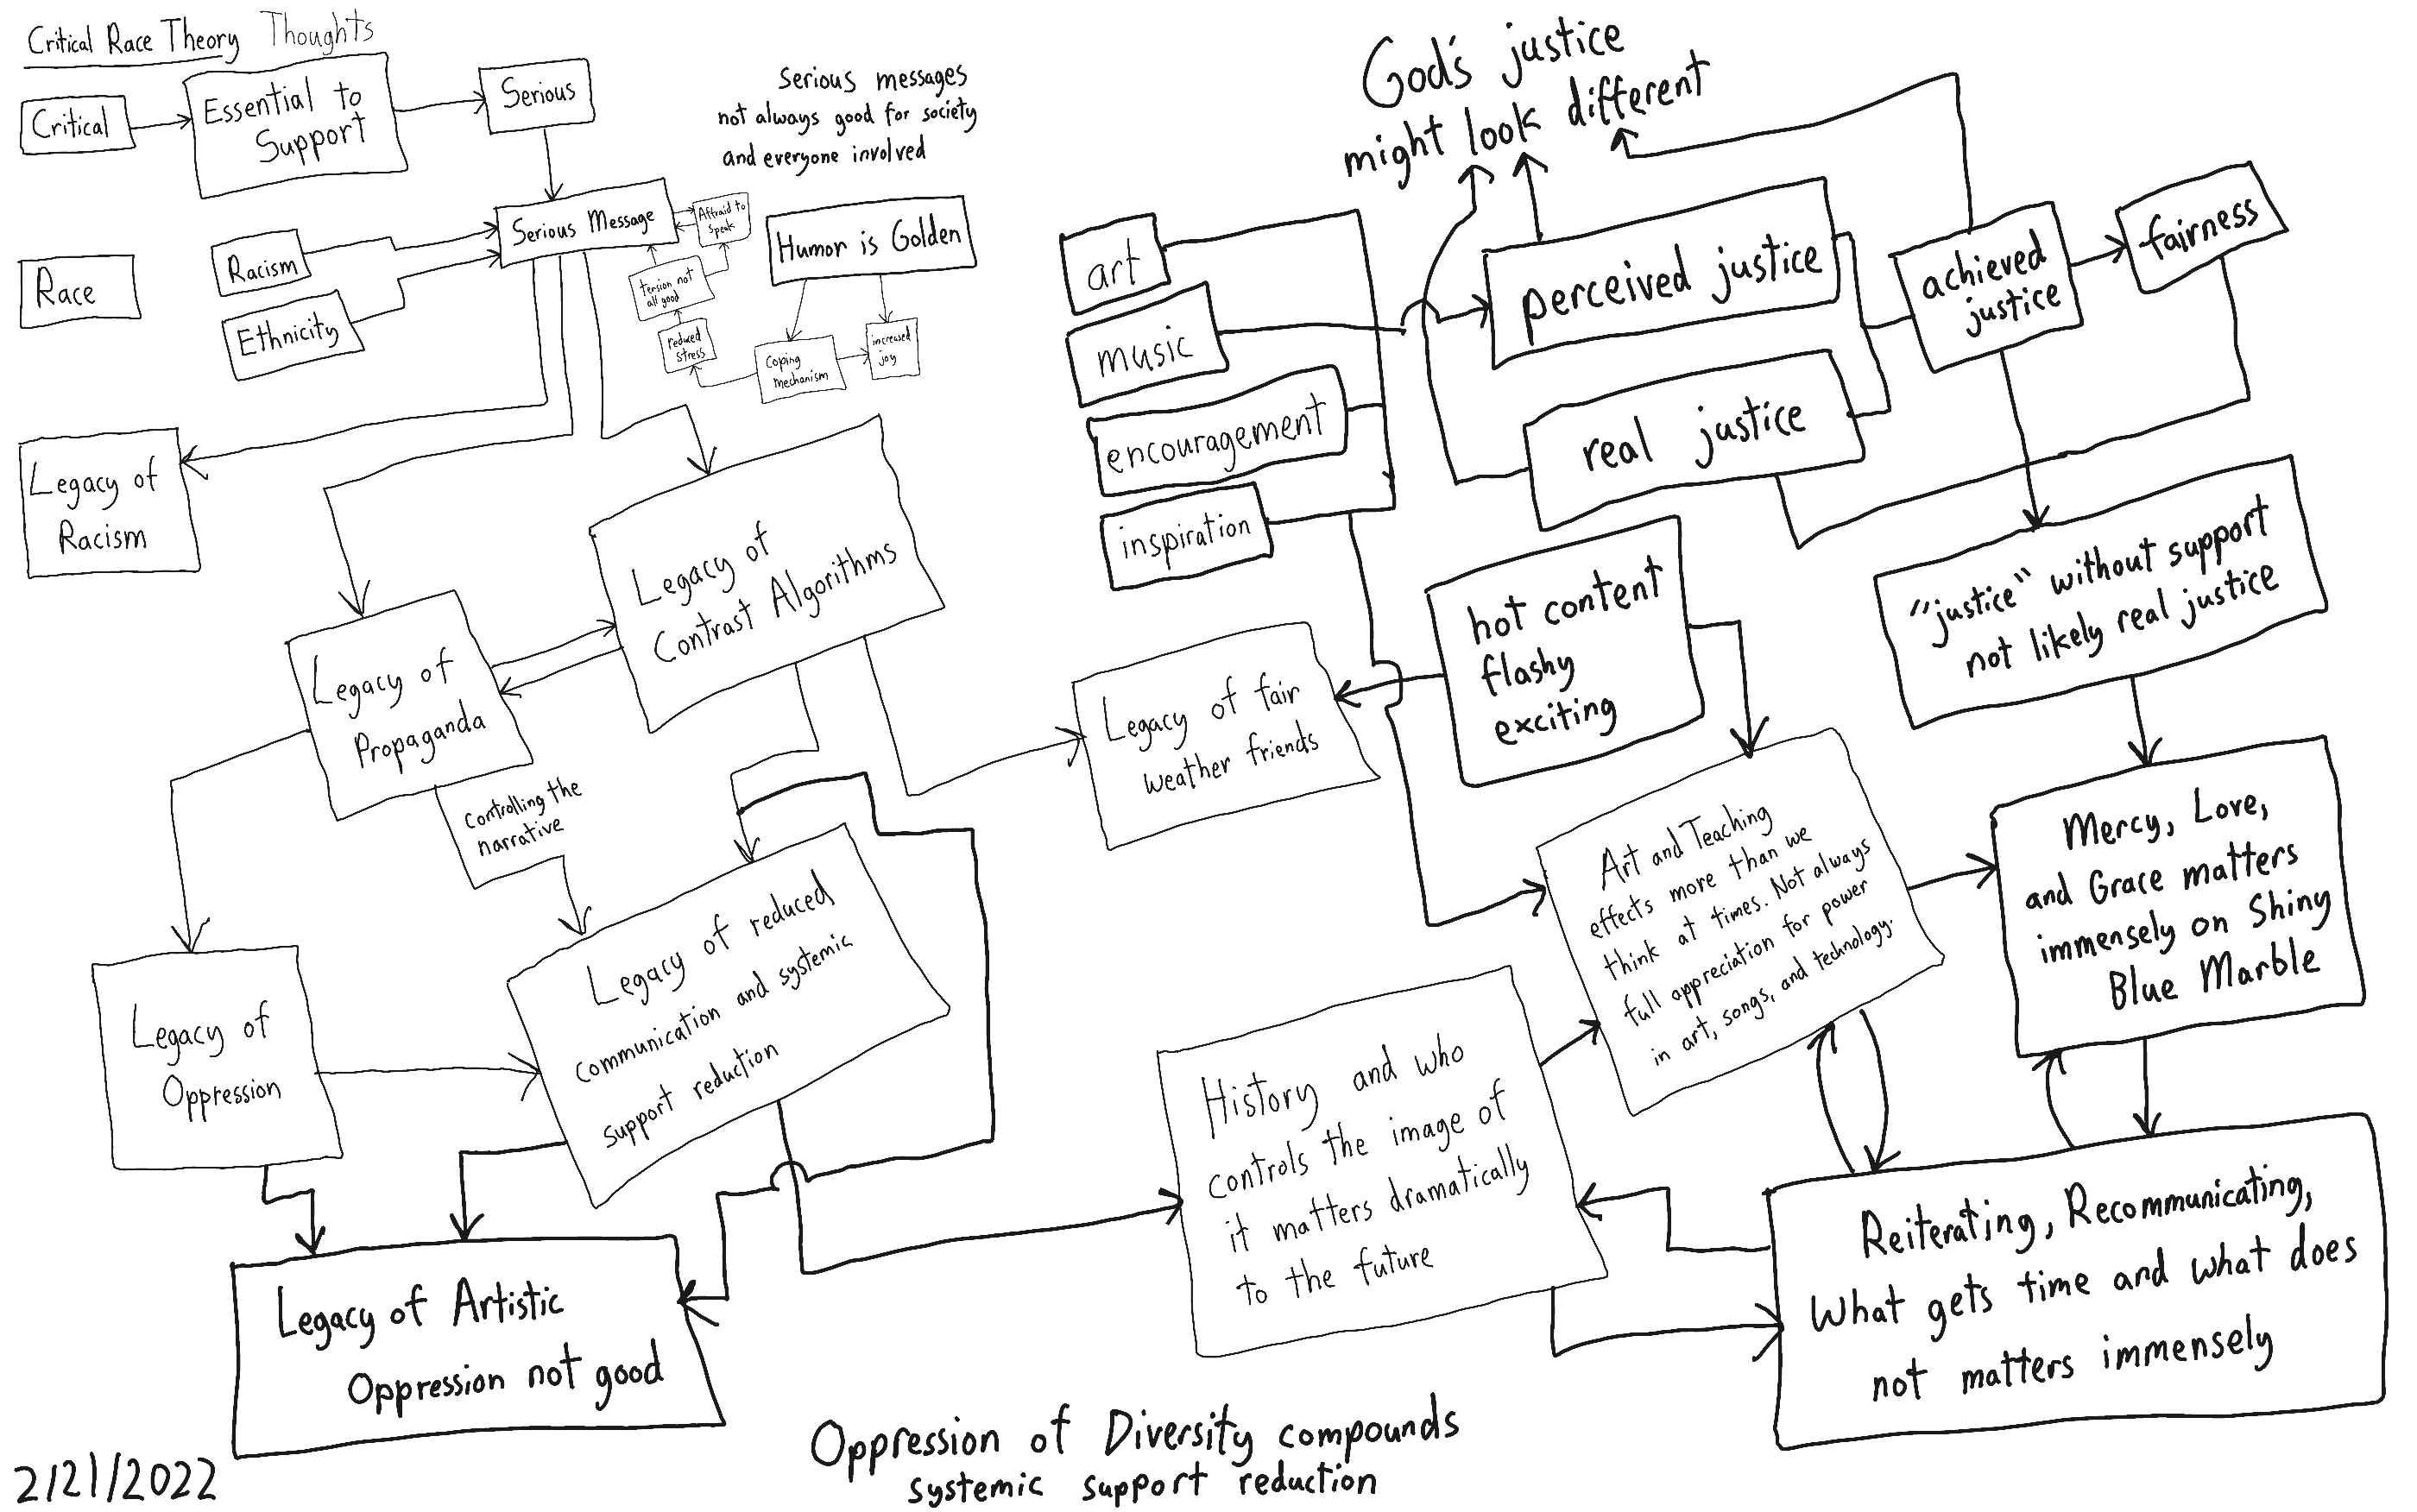 Critical Race Theory Thoughts
Critical
Essential to
Support
Serious
Serious messages
not always good for society
and everyone involved
Race
Racism
Ethnicity
Serious Message
Affraid to
speak
tension not
all good
reduced
stress
Humor is Golden
Coping
mechanism
increased
joy
Legacy of
Racism
Legacy of
Contrast Algorithms
Legacy of
Propaganda
Controlling the
narrative
Legacy of
Oppression
Legacy of reduced
communication and systemic
support reduction
Legacy of Artistic
Oppression not good
2/21/2022
God's justice
might look different
art
music
encouragement
inspiration
perceived justice
real justice
achieved
justice
fairness
hot content
flashy
exciting
"justice" without support
not likely real justice
Legacy of fair
weather friends
Art and Teaching
effects more than we
think at times. Not always
full appreciation for power
in art, songs, and technology.
Mercy, Love,
and Grace matters
immensely on Shiny
Blue Marble
History and who
controls the image of
it matters dramatically
to the future
Reiterating, Recommunicating,
What gets time and what does
not matters immensely
Oppression of Diversity compounds
systemic support reduction